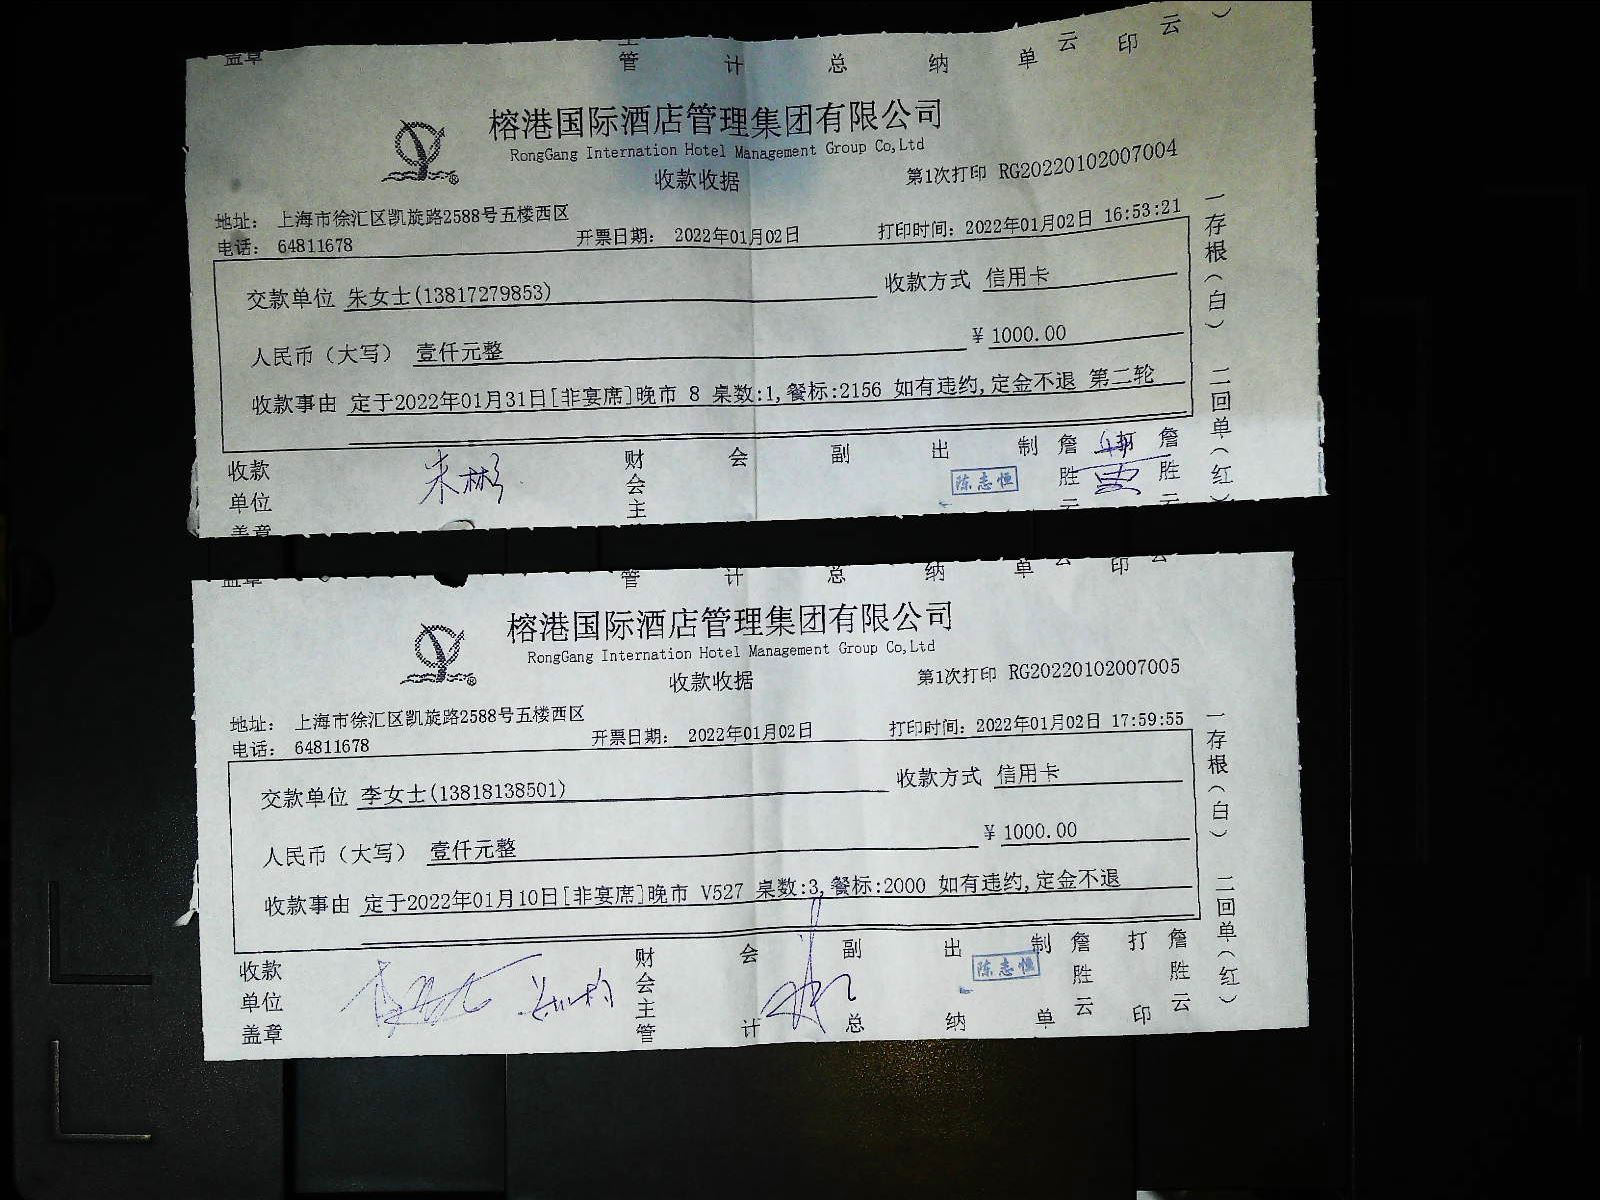 盖章 主管 计 总 纳 单 云 印 云
榕港国际酒店管理集团有限公司
RongGang Internation Hotel Management Group Co,Ltd
收款收据
第1次打印 RG20220102007004
地址: 上海市徐汇区凯旋路2588号五楼西区
电话: 64811678
开票日期: 2022年01月02日
打印时间: 2022年01月02日 16:53:21
交款单位 朱女士(13817279853)
收款方式 信用卡
人民币(大写) 壹仟元整
¥ 1000.00
收款事由 定于2022年01月31日[非宴席]晚市 8 桌数:1,餐标:2156 如有违约,定金不退 第二轮
一存根(白) 二回单(红)
收款单位盖章
朱彬
财会主 会 副 出 制 詹胜云 打 詹胜云
陈志恒
盖章 管 计 总 纳 单 云 印 云
榕港国际酒店管理集团有限公司
RongGang Internation Hotel Management Group Co,Ltd
收款收据
第1次打印 RG20220102007005
地址: 上海市徐汇区凯旋路2588号五楼西区
电话: 64811678
开票日期: 2022年01月02日
打印时间: 2022年01月02日 17:59:55
交款单位 李女士(13818138501)
收款方式 信用卡
人民币(大写) 壹仟元整
¥ 1000.00
收款事由 定于2022年01月10日[非宴席]晚市 V527 桌数:3,餐标:2000 如有违约,定金不退
一存根(白) 二回单(红)
收款单位盖章
财会主管 会计 副总 出纳 制单 詹胜云 打印 詹胜云
陈志恒